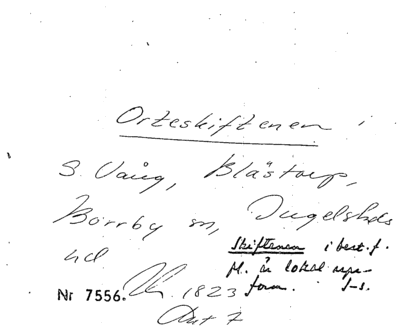 Orteskiftenen i
S. Vång, Blästorp,
Borrby sn, Ingelstads
hd
Skiftenen i best. f.
pl. är lokal
form. J-s.
Nr 7556. 1823
Akt 7